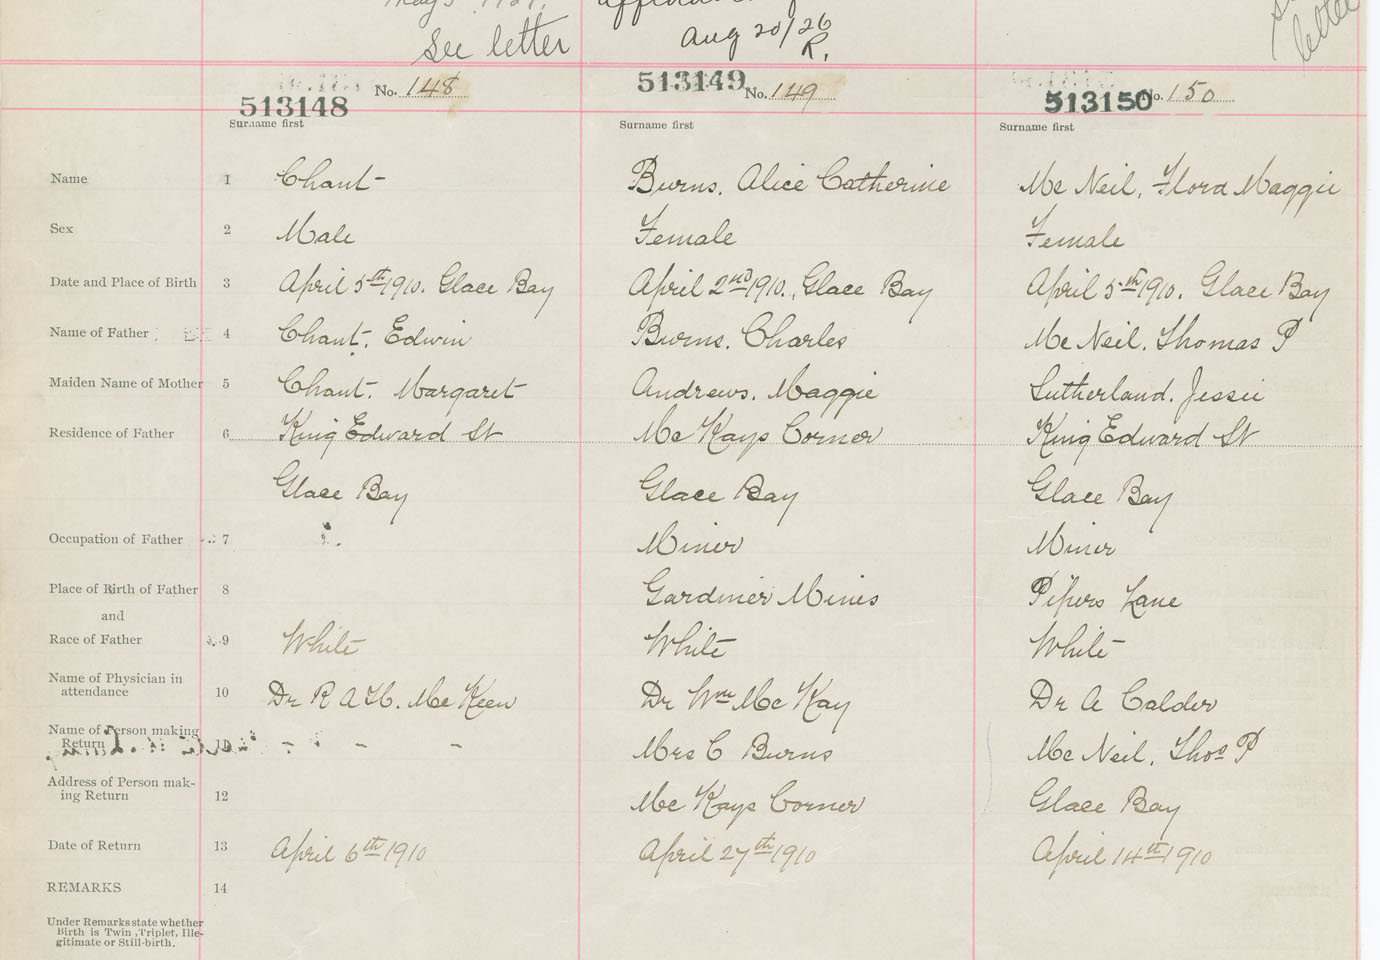 May 3 1927.
See letter
Aug 20/26
R.
letter
513148 No. 148
513149 No. 149
513150 No. 150
Surname first Surname first Surname first
Name 1 Chant Burns. Alice Catherine Mc Neil, Flora Maggie
Sex 2 Male Female Female
Date and Place of Birth 3 April 5th 1910. Glace Bay April 2nd 1910., Glace Bay April 5th 1910. Glace Bay
Name of Father 4 Chant. Edwin Burns. Charles Mc Neil. Thomas P
Maiden Name of Mother 5 Chant. Margaret Andrews. Maggie Sutherland. Jessie
Residence of Father 6 King Edward St Mc Kays Corner King Edward St
Glace Bay Glace Bay Glace Bay
Occupation of Father 7 Miner Miner
Place of Birth of Father 8 Gardiner Mines Pipers Lane
and
Race of Father 9 White White White
Name of Physician in
attendance 10 Dr R A H. Mc Keen Dr Wm Mc Kay Dr A Calder
Name of Person making
Return 11 - - - Mrs C Burns Mc Neil, Thos P
Address of Person mak-
ing Return 12 Mc Kays Corner Glace Bay
Date of Return 13 April 6th 1910 April 27th 1910 April 14th 1910
REMARKS 14
Under Remarks state whether
Birth is Twin, Triplet, Ille-
gitimate or Still-birth.